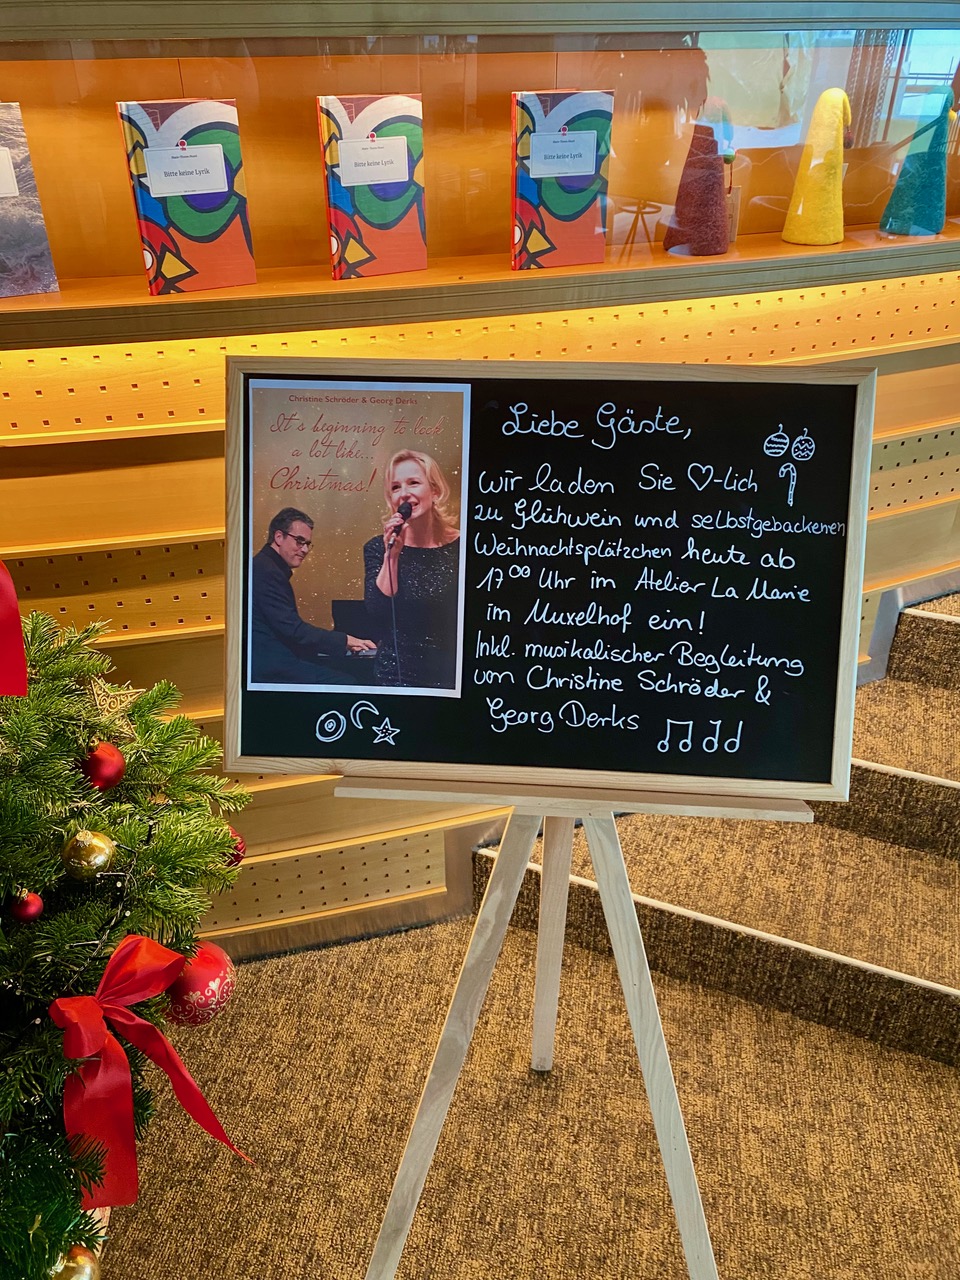 Bitte keine Lyrik
Bitte keine Lyrik
Bitte keine Lyrik
Christine Schröder & Georg Derks
It's beginning to look
a lot like...
Christmas!
Liebe Gäste,
wir laden Sie ♡-lich
zu Glühwein und selbstgebackenen
Weihnachtsplätzchen heute ab
17⁰⁰ Uhr im Atelier La Marie
im Muxelhof ein!
Inkl. musikalischer Begleitung
von Christine Schröder &
Georg Derks